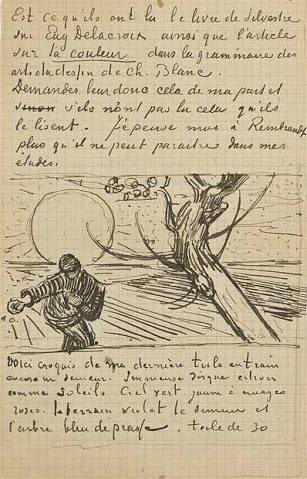 Est ce qu'ils ont lu le livre de Silvestre
sur Eug Delacroix ainsi que l'article
sur la couleur dans la grammaire des
arts du dessin de Ch. Blanc.
Demandez leur donc cela de ma part et
sinon s'ils n'ont pas lu cela qu'ils
le lisent. J'épense moi à Rembrandt
plus qu'il ne peut paraitre dans mes
études.
Voici croquis de ma dernière toile en train
encore un semeur. Immense disque citron
comme soleil. Ciel vert jaune à nuages
roses. le terrain violet le semeur et
l'arbre bleu de prusse. toile de 30